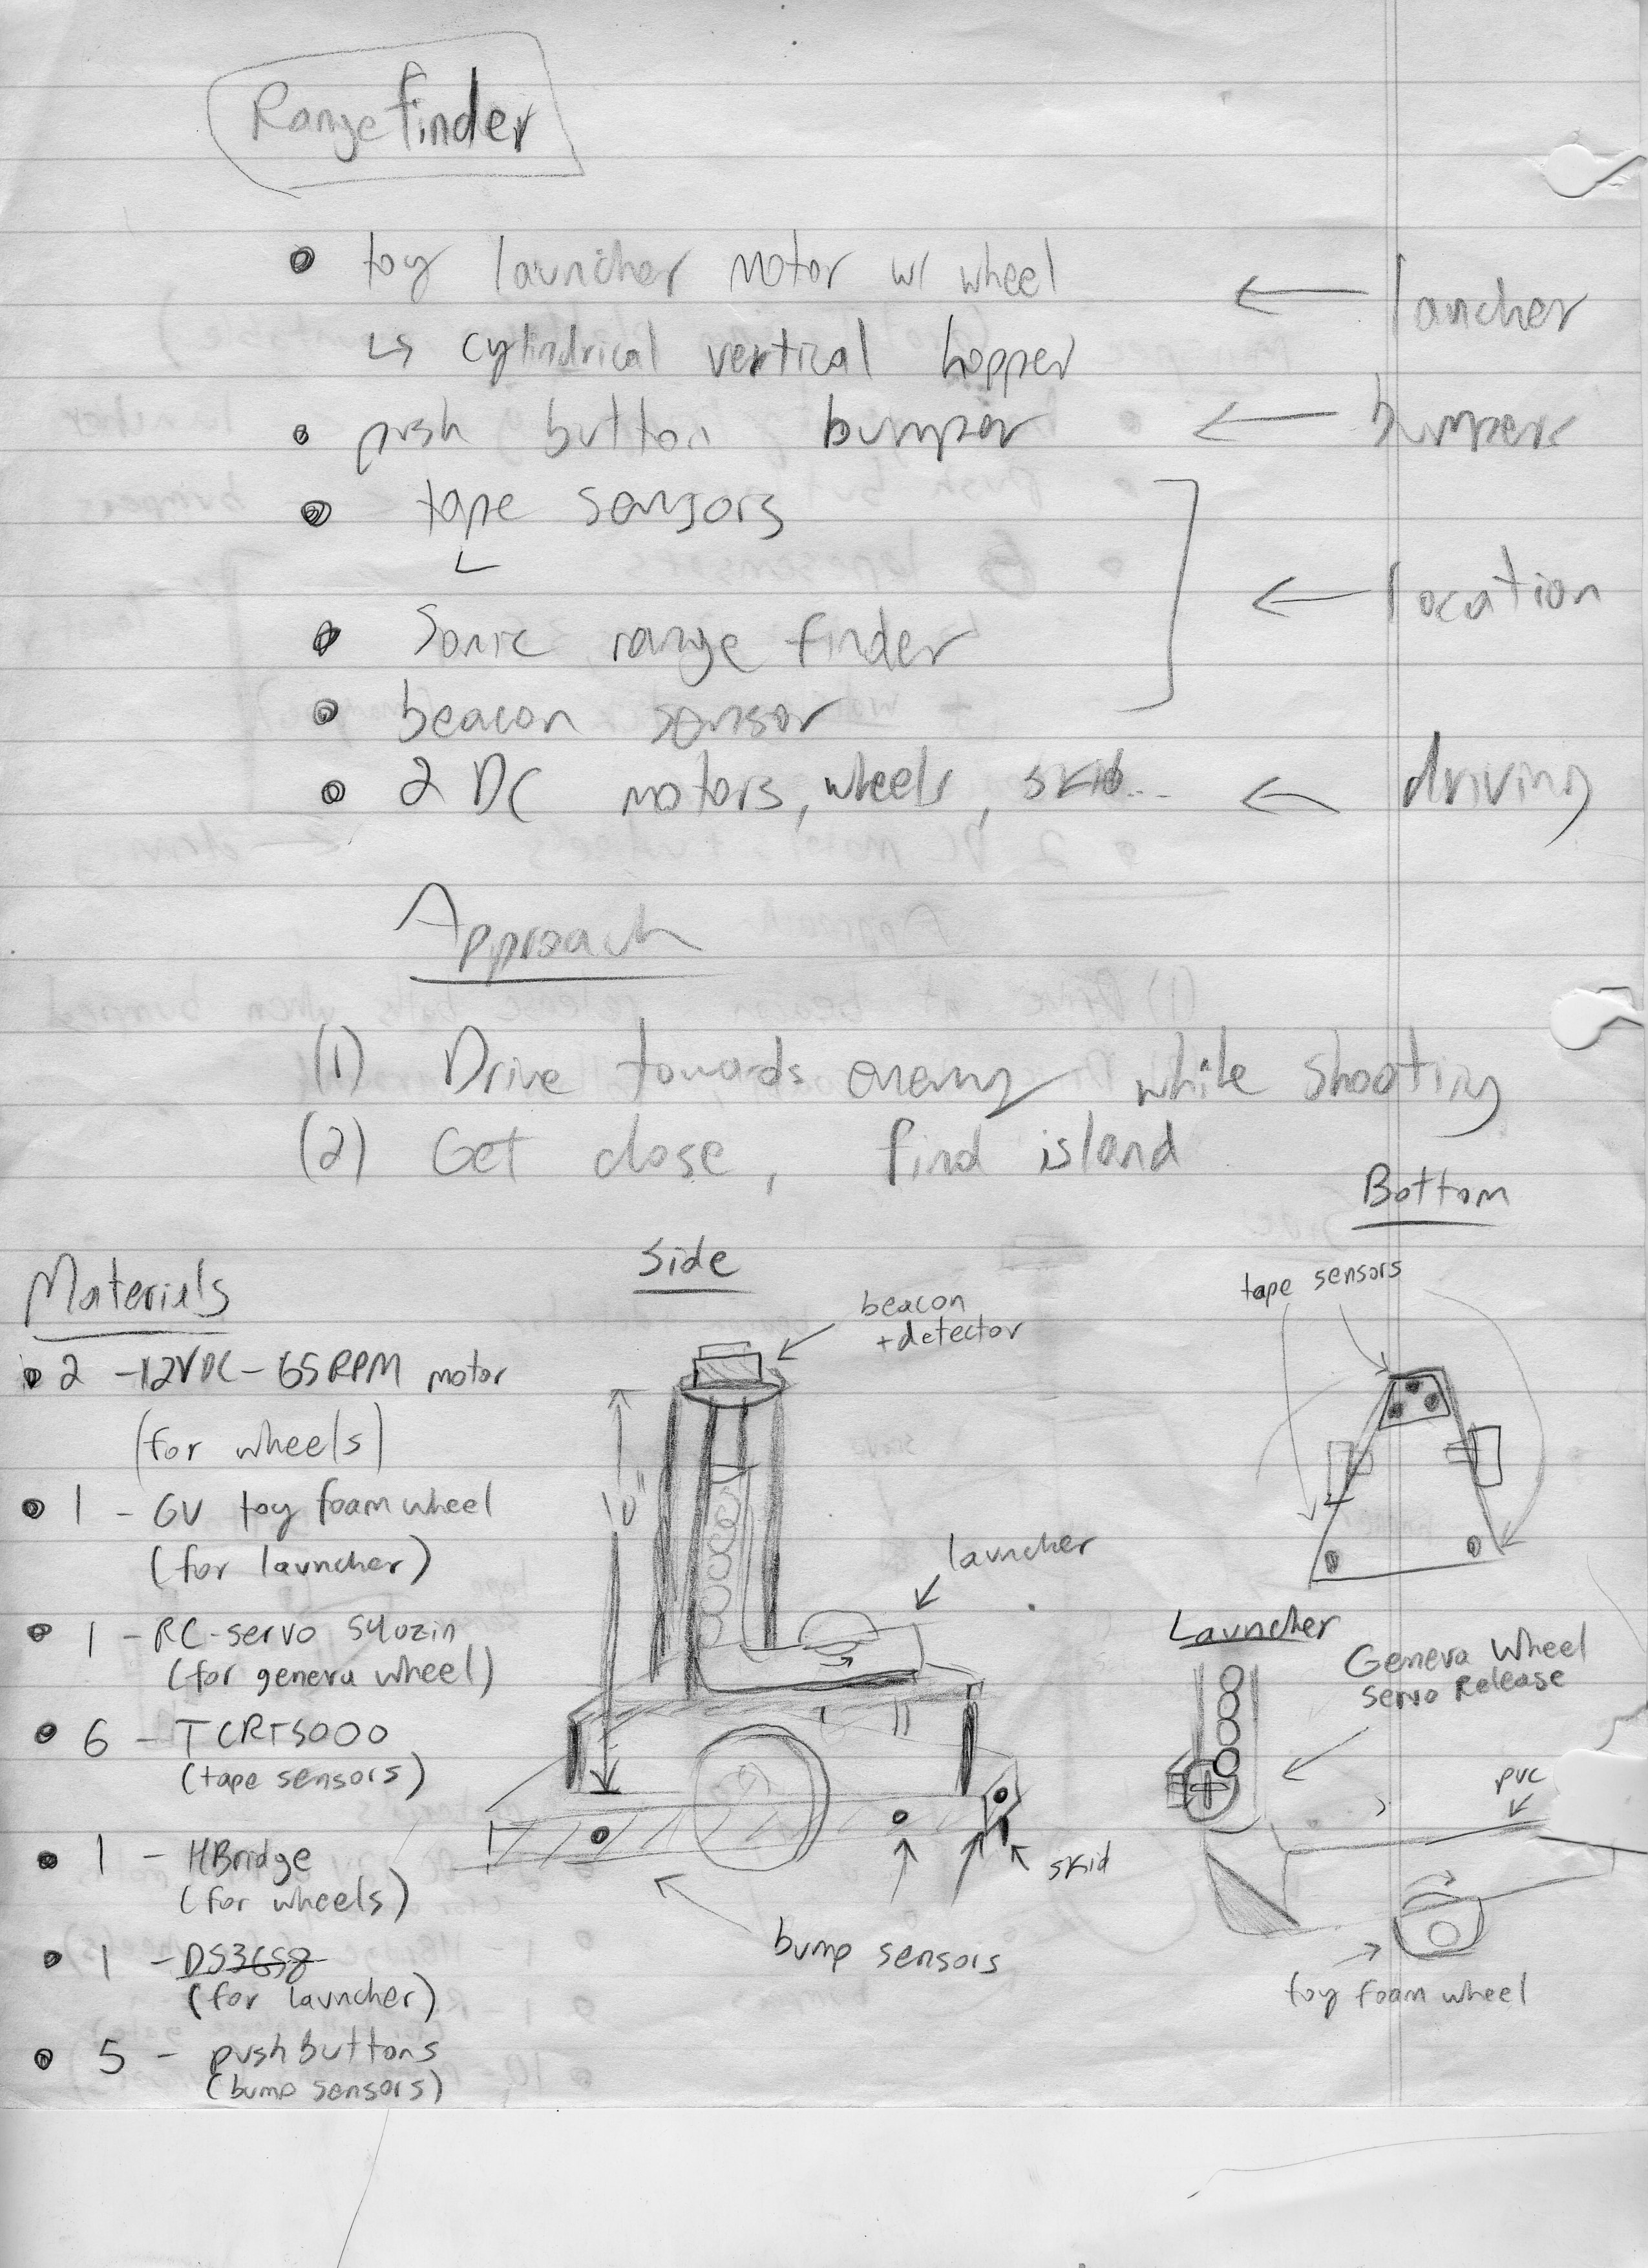 Range finder
toy launcher motor w/ wheel ← lancher
↳ cylindrical vertical hopper
push button bumper ← bumpers
tape sensors
Sonic range finder ← location
beacon sensor
2 DC motors, wheels, skid... ← driving
Approach
(1) Drive towards enemy while shooting
(2) Get close, find island
Materials
2 - 12VDC - 65RPM motor
(for wheels)
1 - 6V toy foam wheel
(for launcher)
1 - RC-servo
(for geneva wheel)
6 - TCRT5000
(tape sensors)
1 - HBridge
(for wheels)
1 - DS3658
(for launcher)
5 - push buttons
(bump sensors)
Side
beacon
+detector
10"
launcher
skid
bump sensors
Bottom
tape sensors
Launcher
Geneva Wheel
Servo Release
pvc
toy foam wheel